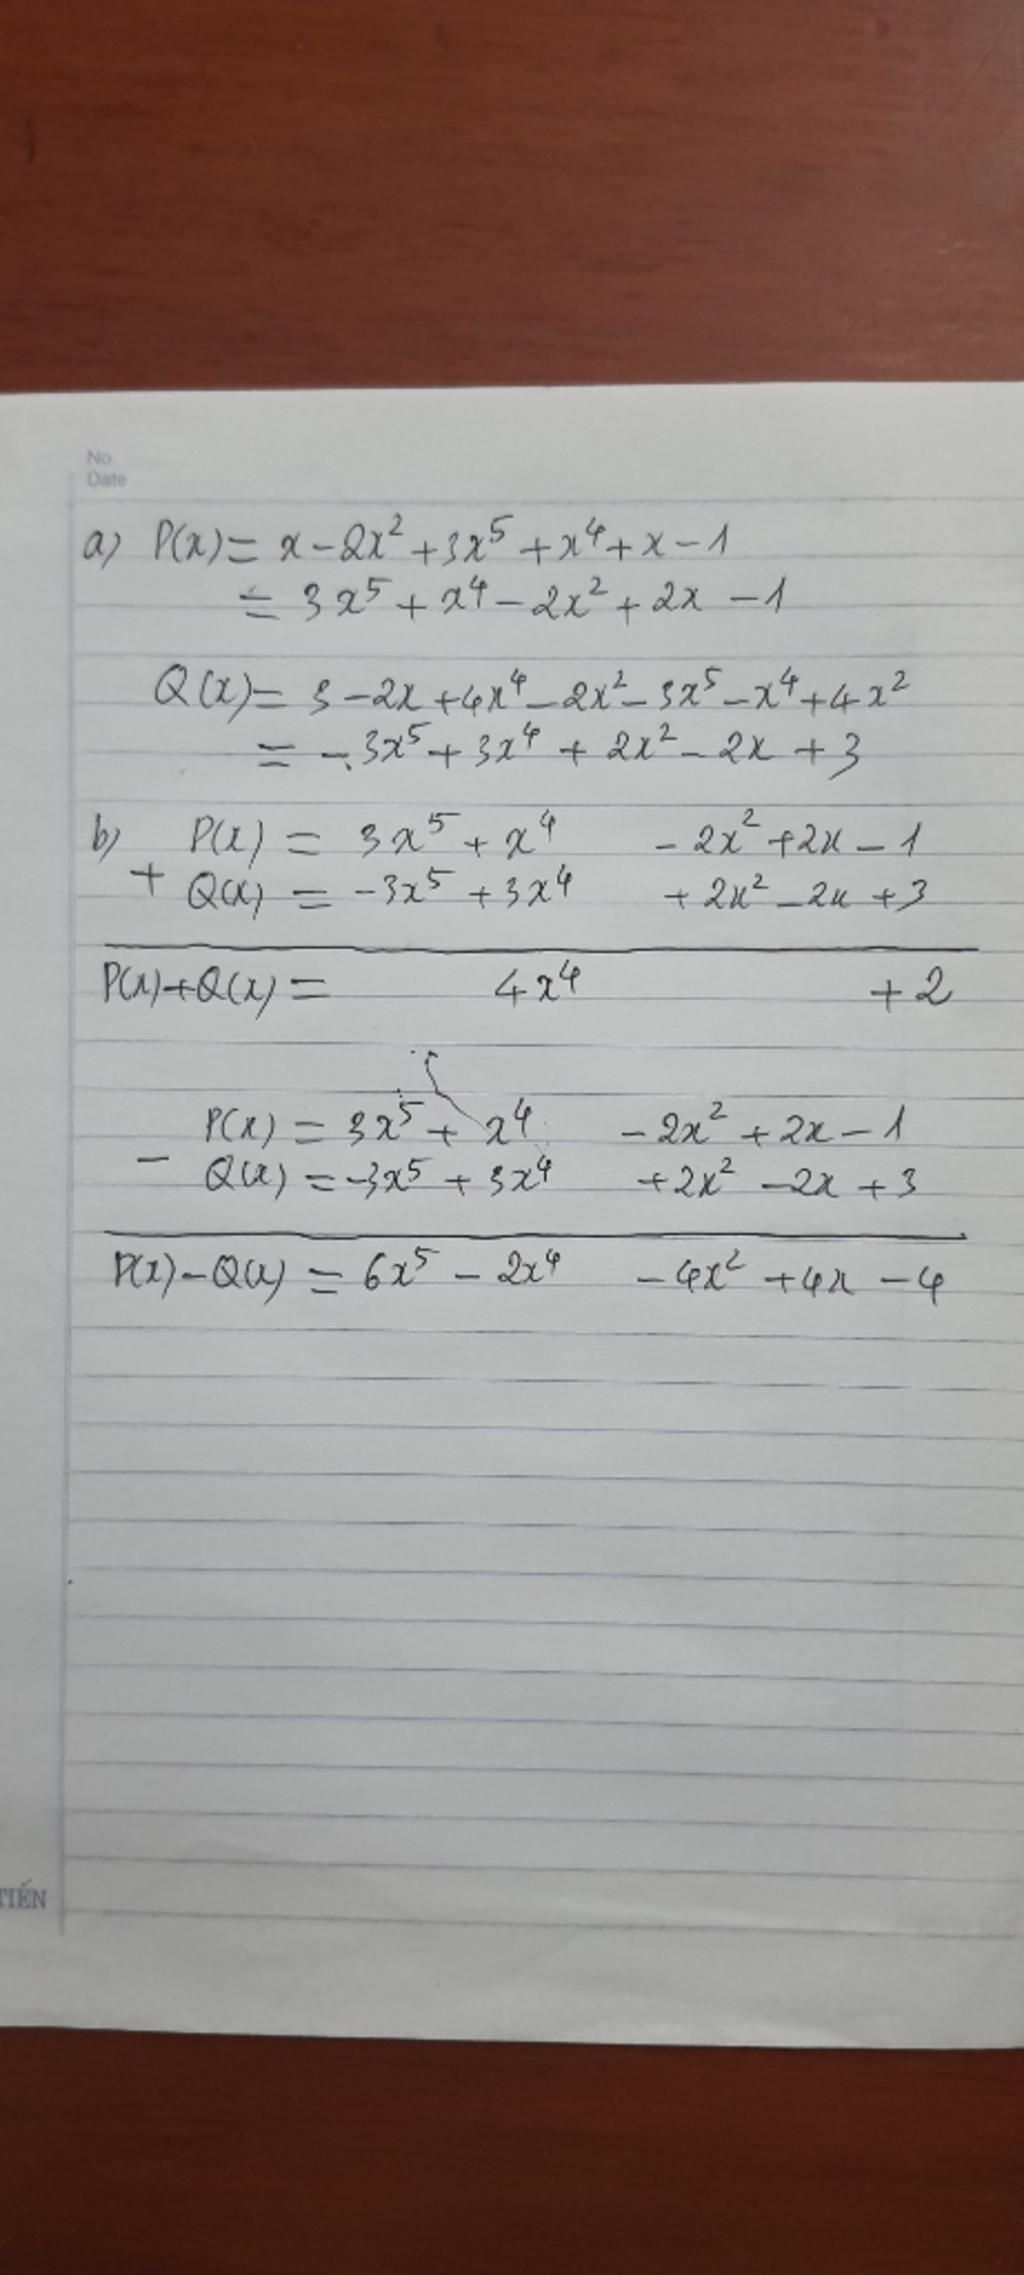 No.
Date
a) P(x) = x - 2x² + 3x⁵ + x⁴ + x - 1
= 3x⁵ + x⁴ - 2x² + 2x - 1
Q(x) = 3 - 2x + 4x⁴ - 2x² - 3x⁵ - x⁴ + 4x²
= -3x⁵ + 3x⁴ + 2x² - 2x + 3
b) P(x) = 3x⁵ + x⁴ - 2x² + 2x - 1
+ Q(x) = -3x⁵ + 3x⁴ + 2x² - 2x + 3
P(x) + Q(x) = 4x⁴ + 2
P(x) = 3x⁵ + x⁴ - 2x² + 2x - 1
- Q(x) = -3x⁵ + 3x⁴ + 2x² - 2x + 3
P(x) - Q(x) = 6x⁵ - 2x⁴ - 4x² + 4x - 4
TIẾN